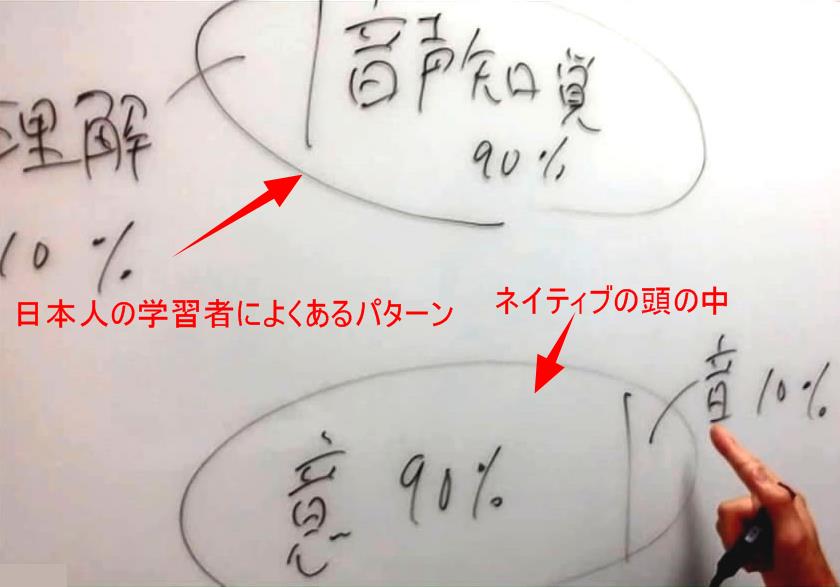 音声知覚
90%
理解
10%
日本人の学習者によくあるパターン
ネイティブの頭の中
音 10%
意 90%